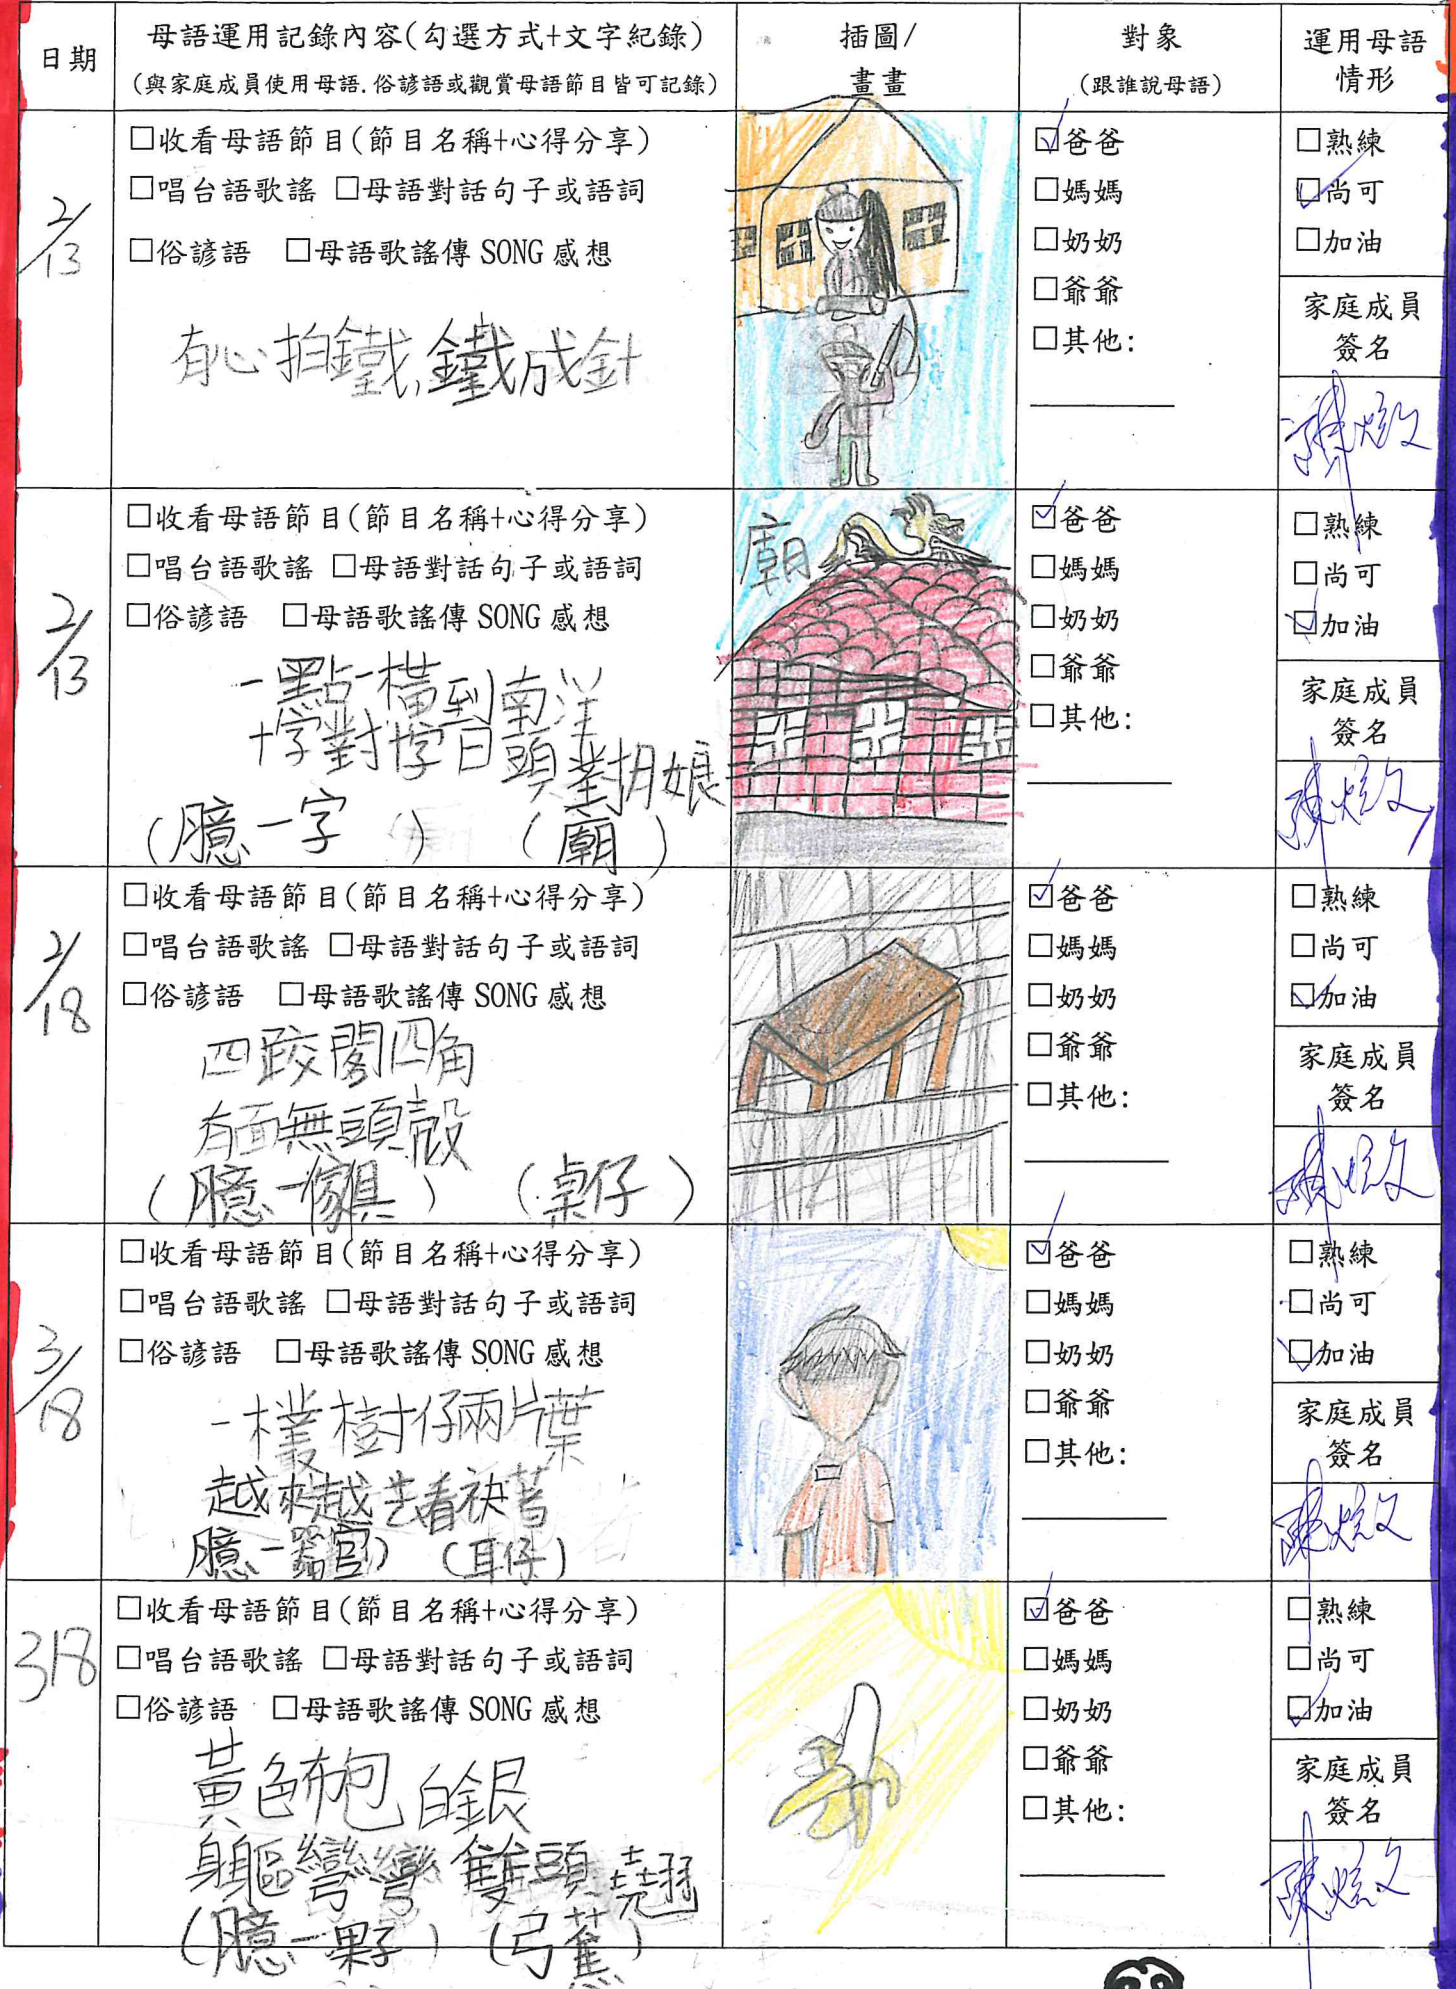 日期
母語運用記錄內容(勾選方式+文字紀錄)
(與家庭成員使用母語.俗諺語或觀賞母語節目皆可記錄)
插圖/
畫畫
對象
(跟誰說母語)
運用母語
情形
2/13
□收看母語節目(節目名稱+心得分享)
□唱台語歌謠 □母語對話句子或語詞
□俗諺語 □母語歌謠傳 SONG 感想
有心拍鐵,鐵成針
☑爸爸
□媽媽
□奶奶
□爺爺
□其他:
□熟練
☑尚可
□加油
家庭成員
簽名
2/13
□收看母語節目(節目名稱+心得分享)
□唱台語歌謠 □母語對話句子或語詞
□俗諺語 □母語歌謠傳 SONG 感想
一點一橫到南洋
十字對十字日頭對月娘
(臆一字) (廟)
廟
☑爸爸
□媽媽
□奶奶
□爺爺
□其他:
□熟練
□尚可
☑加油
家庭成員
簽名
2/18
□收看母語節目(節目名稱+心得分享)
□唱台語歌謠 □母語對話句子或語詞
□俗諺語 □母語歌謠傳 SONG 感想
四跤閣四角
有面無頭殼
(臆一傢俱) (桌仔)
☑爸爸
□媽媽
□奶奶
□爺爺
□其他:
□熟練
□尚可
☑加油
家庭成員
簽名
3/18
□收看母語節目(節目名稱+心得分享)
□唱台語歌謠 □母語對話句子或語詞
□俗諺語 □母語歌謠傳 SONG 感想
一欉樹仔兩片葉
越來越去看袂著
臆一器官) (耳仔)
☑爸爸
□媽媽
□奶奶
□爺爺
□其他:
□熟練
□尚可
☑加油
家庭成員
簽名
318
□收看母語節目(節目名稱+心得分享)
□唱台語歌謠 □母語對話句子或語詞
□俗諺語 □母語歌謠傳 SONG 感想
黃色布包白銀
身軀彎彎雙頭翹
(臆一果子) (弓蕉)
☑爸爸
□媽媽
□奶奶
□爺爺
□其他:
□熟練
□尚可
☑加油
家庭成員
簽名